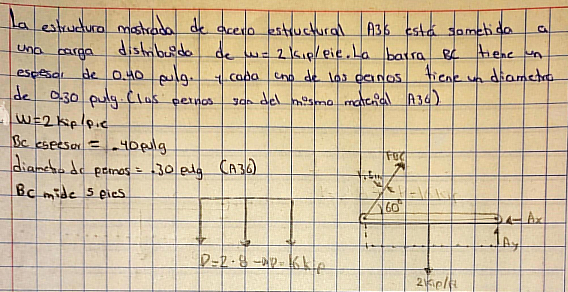 La estructura mostrada de acero estructural A36 está sometida a
una carga distribuida de w= 2kip/pie. La barra BC tiene un
espesor de 0.40 pulg. y cada uno de los pernos tiene un diametro
de 0.30 pulg. (los pernos son del mismo material A36)
W=2kip/pie
BC espesor = .40pulg
diametro de pernos = .30 pulg (A36)
BC mide 5 pies
FBC
60°
Ax
Ay
P=2·8
2kip/ft